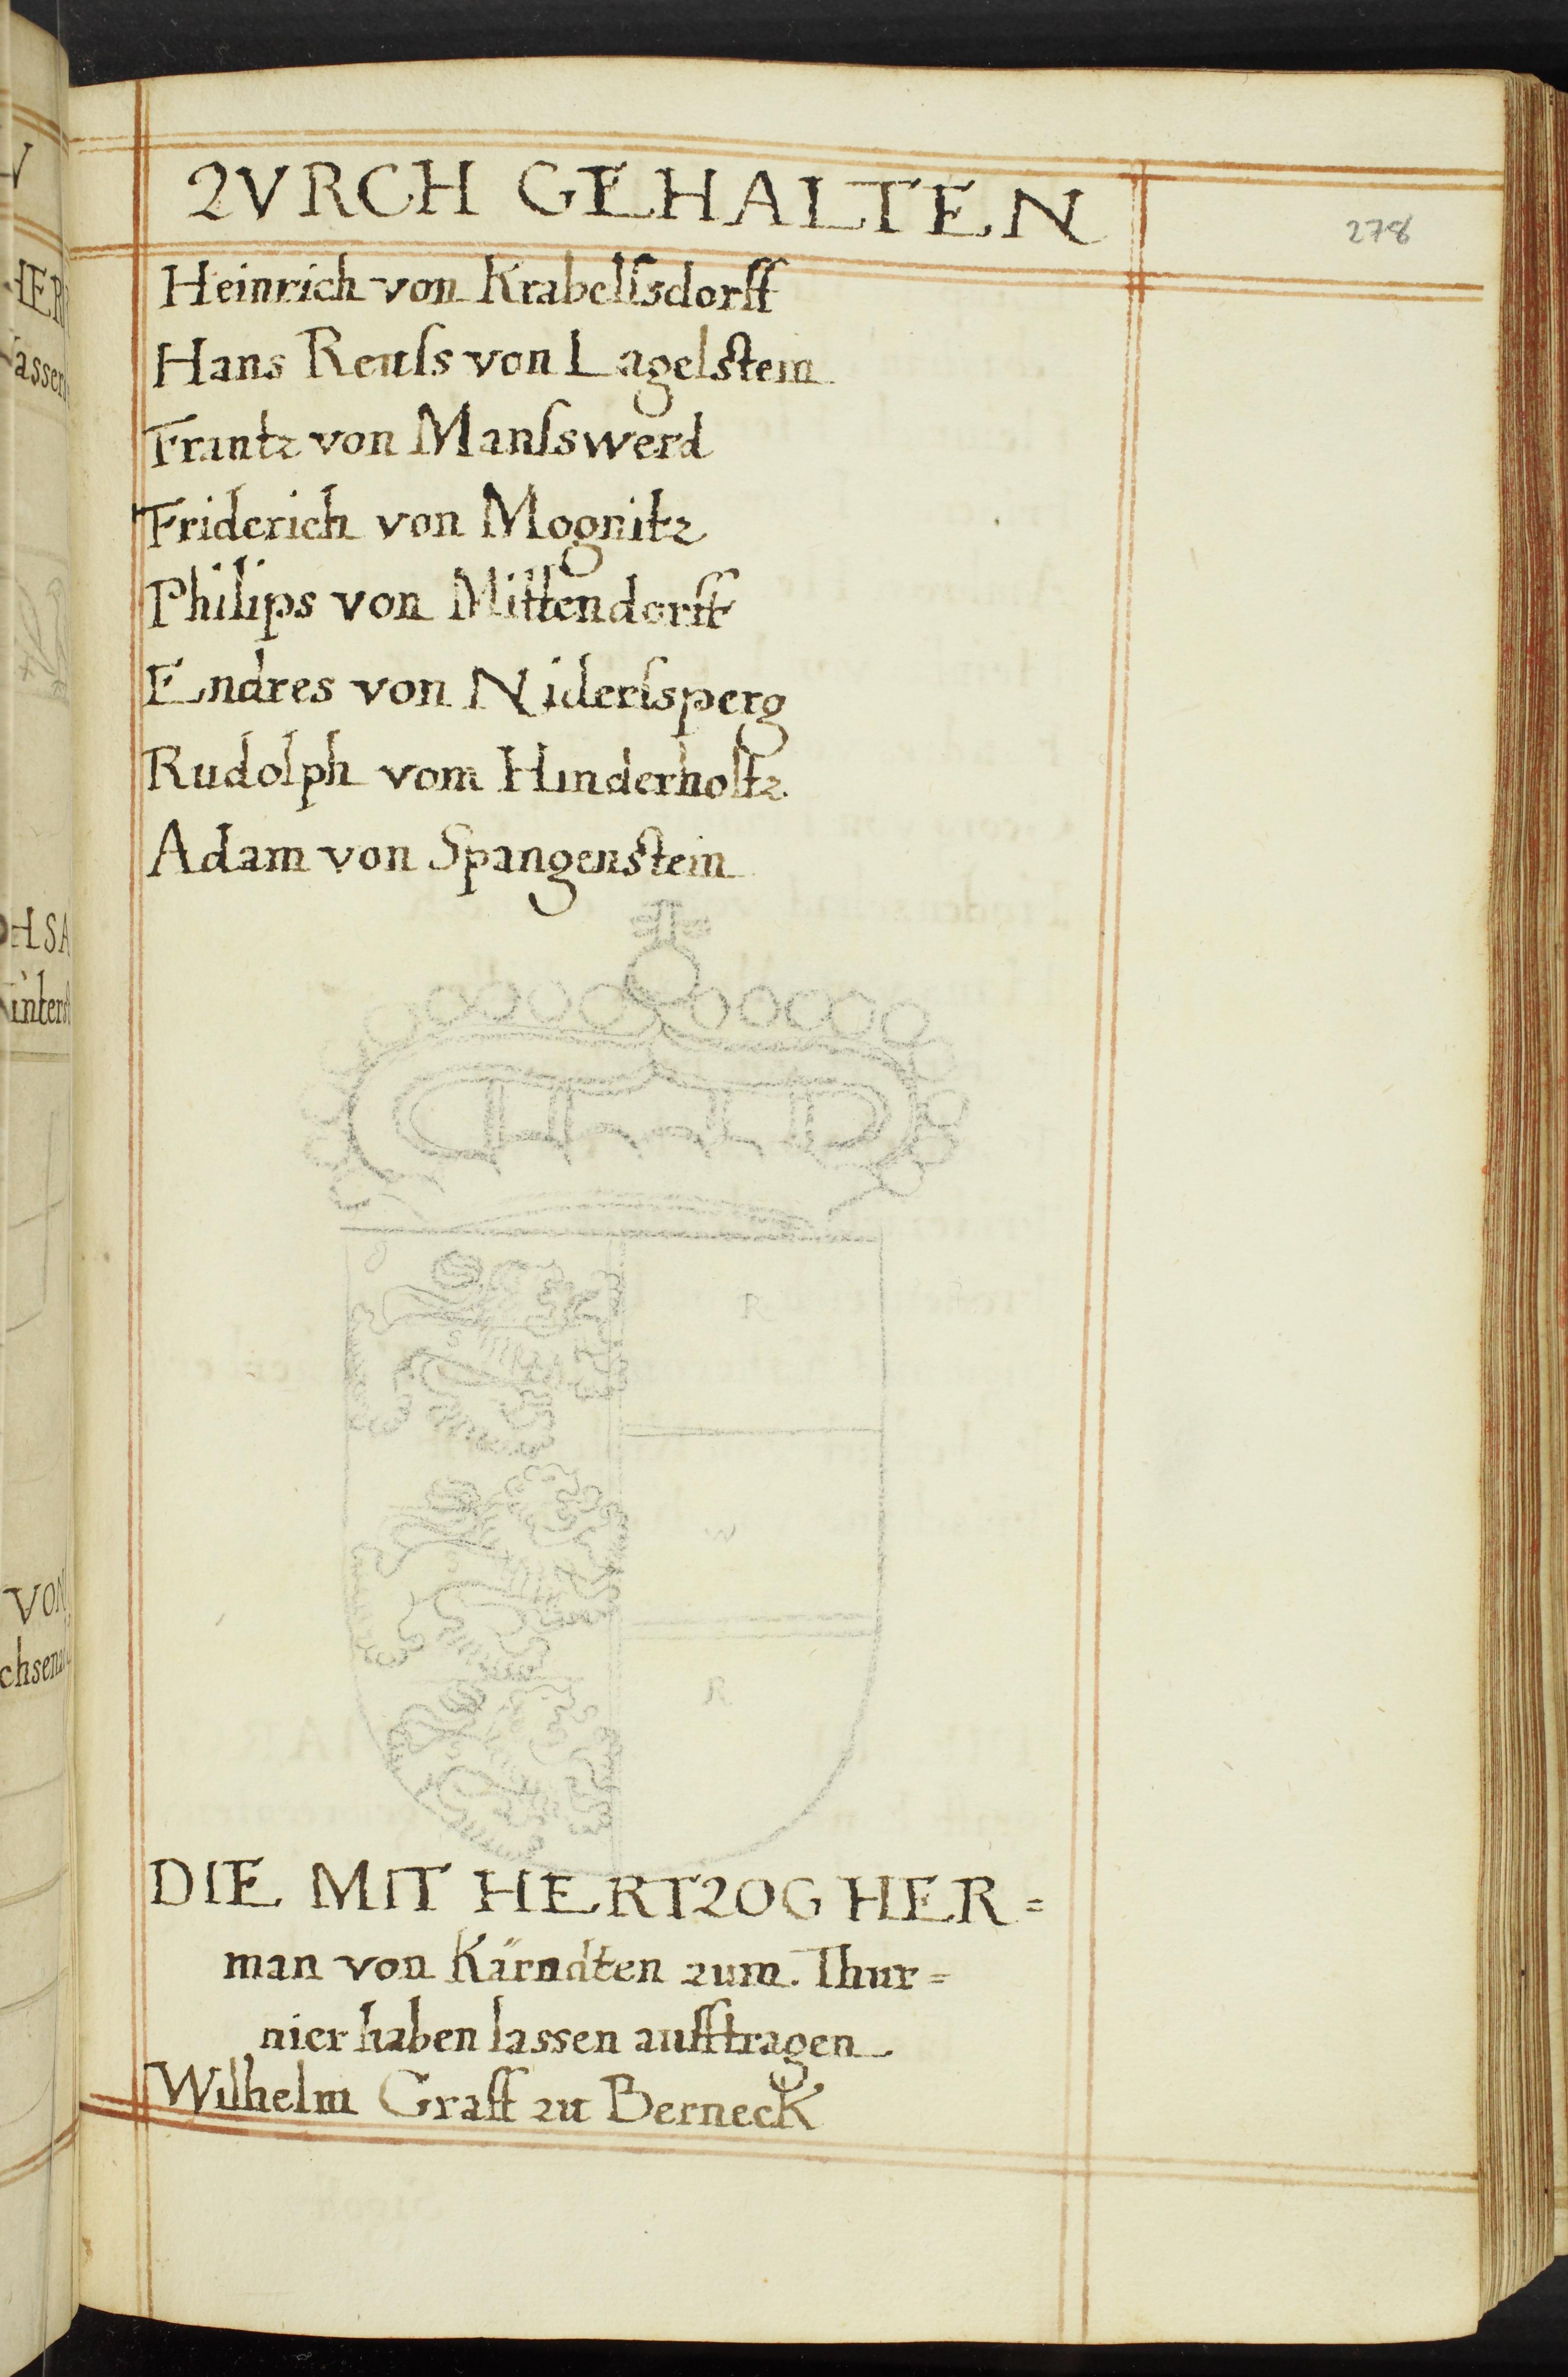 ZVRCH GEHALTEN
278
Heinrich von Krabelſsdorff
Hans Reuſs von Lagelſtein
Frantz von Manſswerd
Friderich von Mognitz
Philips von Mittendorff
Endres von Niderſsperg
Rudolph vom Hinderholtz
Adam von Spangenſtein
R
W
R
DIE MIT HERTZOG HER=
man von Kärndten zum Thur=
nier haben lassen aufftragen
Wilhelm Graff zu Berneck